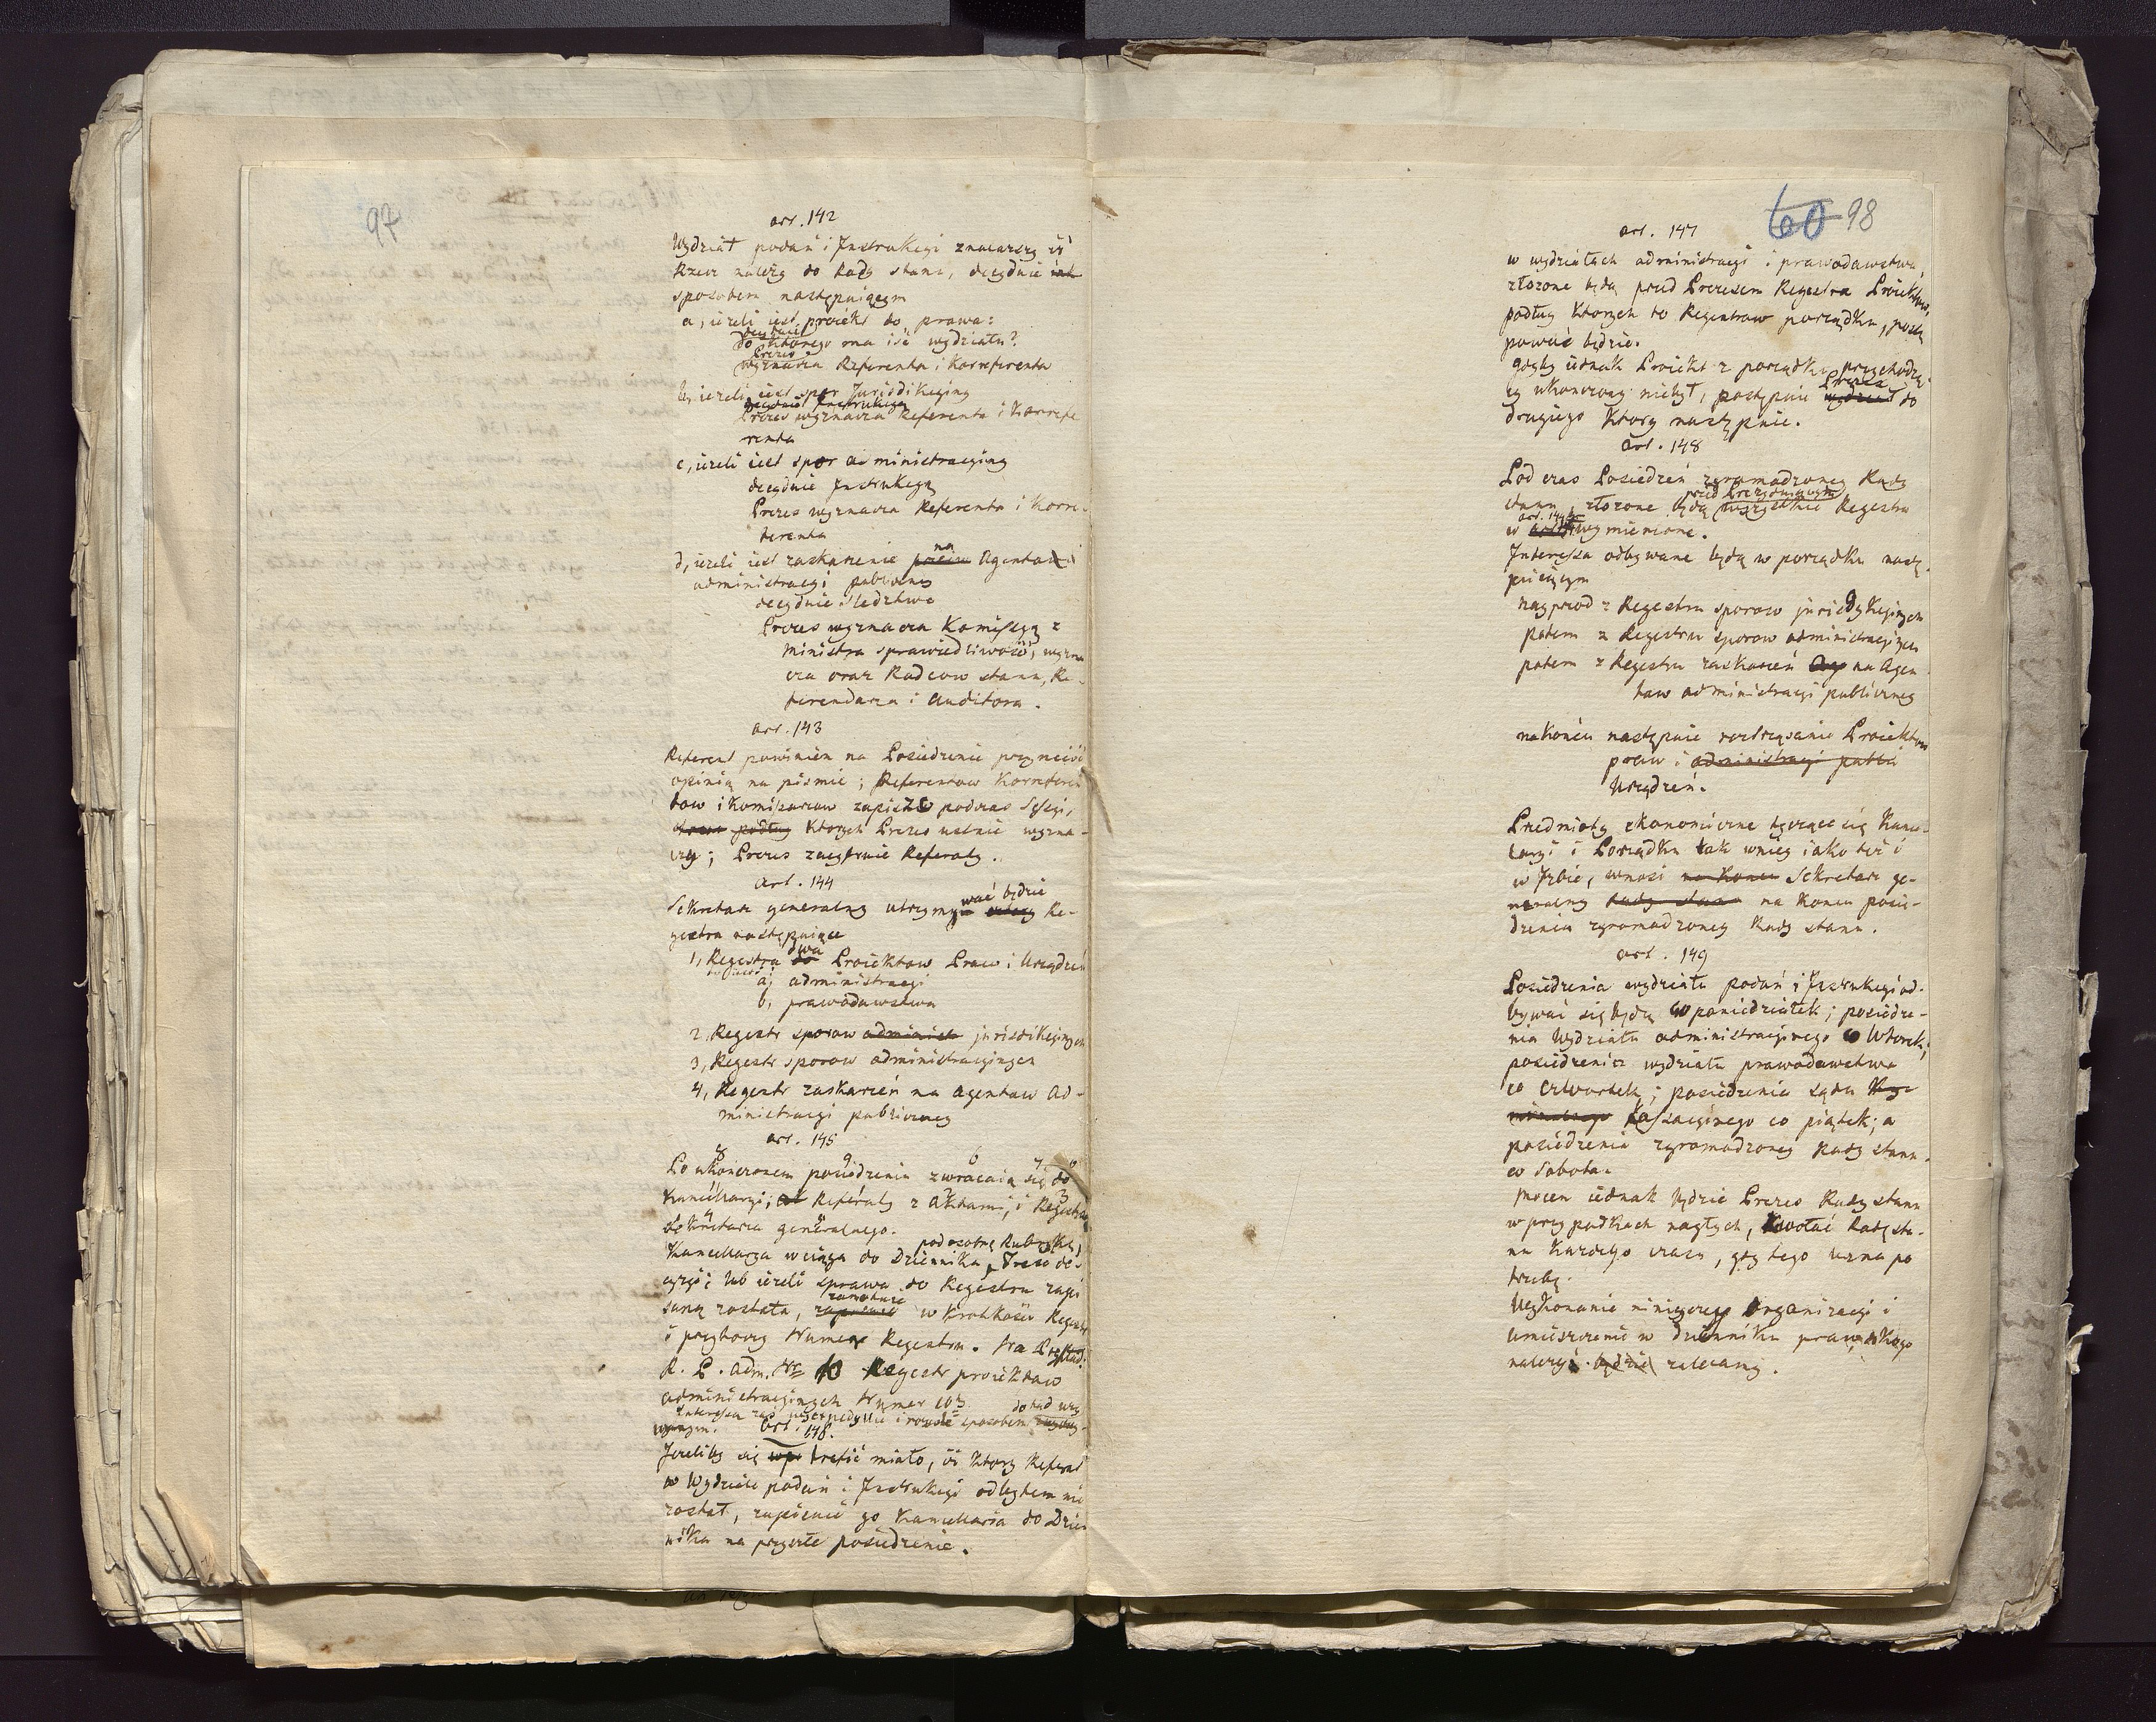 97
art. 142
Wydział podań i Instrukcyi znaiazszy iż
Rzecz należy do Rady stanu, decyduie iak
sposobem następuiącym
a, ieżeli iest proiekt do prawa:
decyduie
do którego ma iść wydziału?
Prezes
wyznacza Referenta i Korreferenta
b, ieżeli iest spor Jurisdikcyiny
decyduie Instrukcyą
Prezes wyznacza Referenta i Korrefe
renta
c, ieżeli iest spor administracyiny
decyduie Instrukcyą
Prezes wyznacza Referenta i Korre-
ferenta
d, ieżeli iest zaskarzenie przeciw na Agentow
administracyi publiczney
decyduie Sledztwo
Prezes wyznacza Komissyą z
Ministra sprawiedliwości, wyzna
cza oraz Radcow stanu, Re-
ferendarza i Auditora.
art. 143
Referent powinien na Posiedzenie przynieść
opinią na pismie; Referentow Korreferen
tow i Komisarzow zapisze podczas Sessyi,
podług Ktorych Prezes ustnie wyzna-
czy; Prezes zacytuie Referaty.
art. 144
wać będzie
Sekretarz generalny utrzymy cztery Re-
gestra następuiące
1, Regestra dwa Proiektow Praw i Urządzeń
a, administracyi
b, prawodawstwa
2, Regestr sporow administ jurisdikcyinych
3, Regestr sporow administracyinych
4, Regestr zaskarzeń na Agentow Ad-
ministracyi publiczney
art. 145
Po ukonczonem posiedzeniu zwracaią się do
Kancellaryi; Referaty z Aktami, i Regestra
Sekretarza generalnego.
pod osobną Rubryką,
Kancellarya wciąga do Dziennika, Treść de-
cyzyi; lub ieżeli sprawa do Regestru zapi
saną została, zanotuie zapisuie w Krotkości Regestr
i przybory Numer Regestru. Na Przykład:
R. P. Adm. No 10 Regestr proiektow
administracyinych Numer 10ty
Interessa zaś iuż expedyuie i rowno sposobem dotąd uży
wanym. art. 146.
Jeżeliby się trafić miało, iż Ktory Referat
w Wydziale podań i Instrukcyi odbytem nie
został, zapisuie go Kancellaria do Dzien
nika na przyszłe posiedzenie.
60 98
art. 147
w wydziałach administracyi i prawodawstwa,
złożone będą przed Prezesem Regestra Proiektow,
podług Ktorych to Regestrow porządku, postę
pować będzie.
gdyby iednak Proiekt z porządku przychodzą
cy ukonczony niebył, postąpi Prezes wydział do
drugiego Ktory następuie.
art. 148
Pod czas Posiedzeń zgromadzoney Rady
przed Prezyduiącym
stanu, złożone będą wszystkie Regestra
art. 144
w wymienione.
Interessa odbywane będą w porządku nastę-
puiącym
nayprzod z Regestru sporow jurisdykcyinych
potem z Regestru sporow administracyinych
potem z Regestru zaskarzeń na Agen
tow administracyi publiczney
nakońcu następuie roztrząsanie Proiektow
praw i administracyi publi
Urządzeń.
Przedmioty ekonomiczne tyczące się Kance-
laryi i Porządku tak wniey iako też i
w Izbie, wnosi na Koncu Sekretarz ge-
neralny Rady stanu na koncu posie-
dzenia zgromadzoney Rady stanu.
art. 149
Posiedzenia wydziału podań i Instrukcyi od-
bywać się będą co poniedziałek; posiedze-
nia Wydziału administracyinego co Wtorek;
posiedzenia wydziału prawodawstwa
co czwartek; posiedzenia sądu
Kassacyinego co piątek; a
posiedzenia zgromadzoney Rady stanu
co Sobota.
Mocen iednak będzie Prezes Rady stanu
w przypadkach nagłych, zwołać Radę sta-
nu Każdego czasu, gdy tego uzna po
trzebę.
Wykonanie ninieyszey organizacyi i
umieszczenie w dzienniku praw, do Kogo
należy będzie zalecamy.